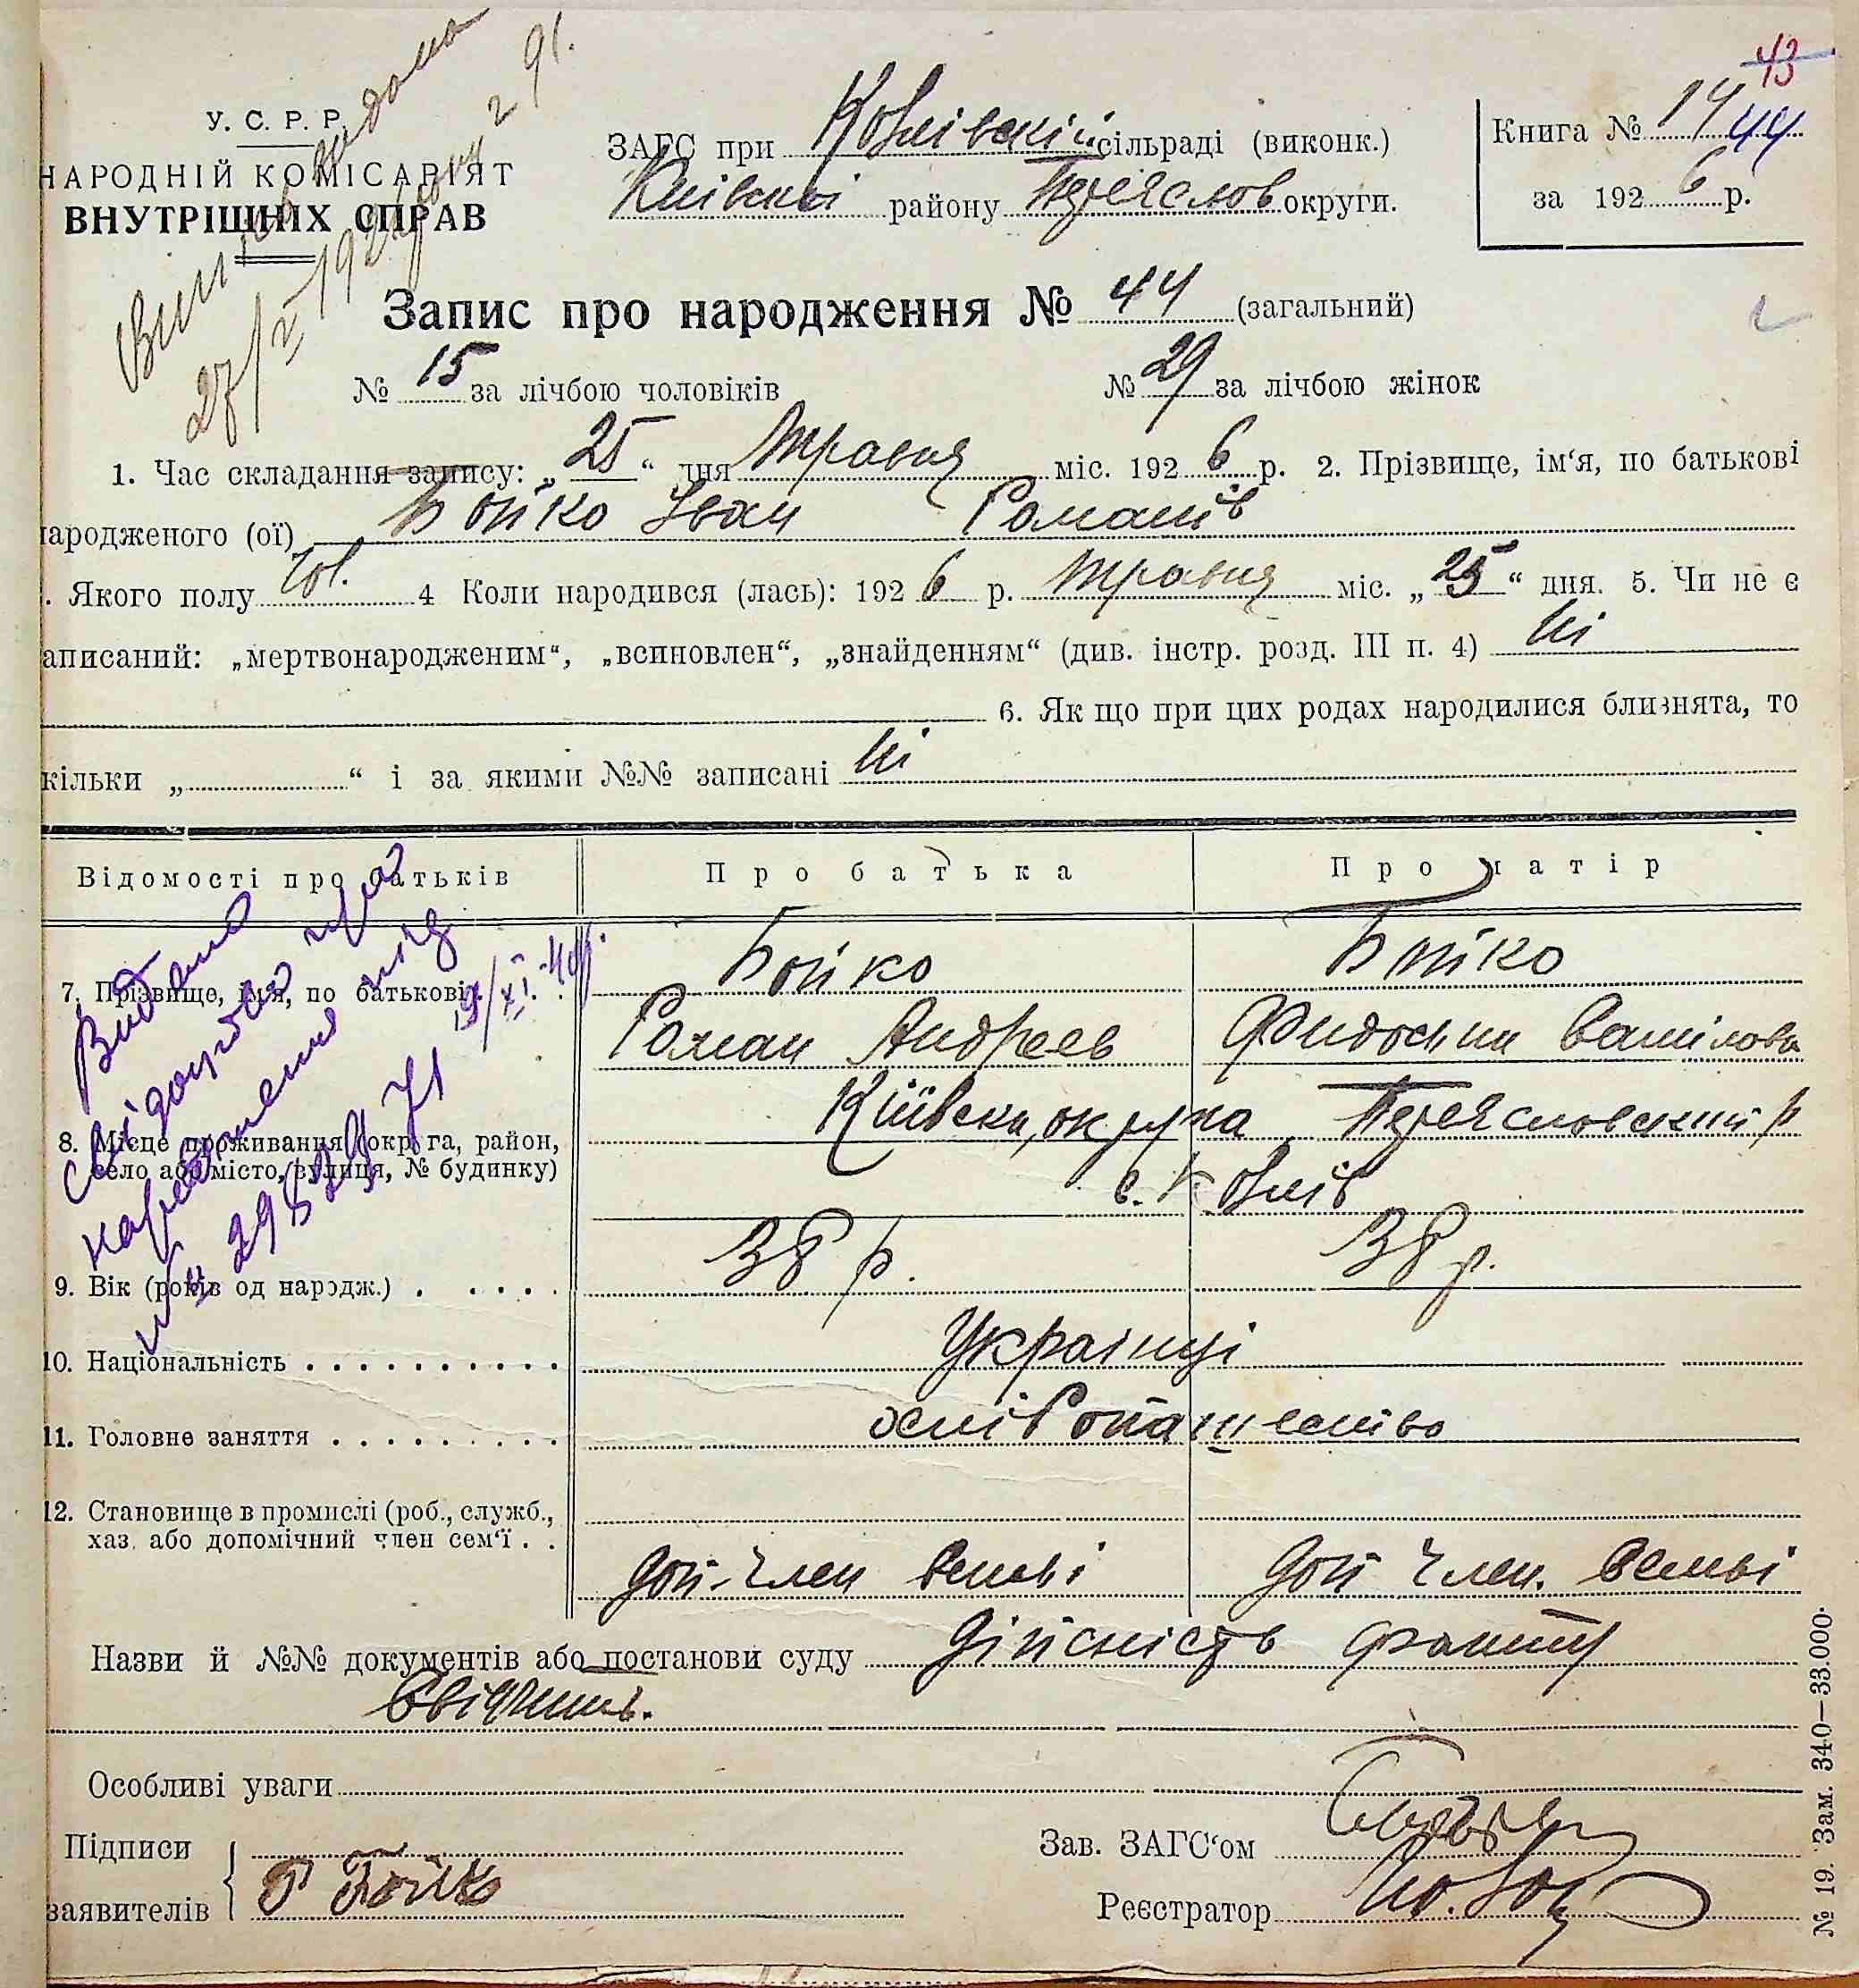 43
У. С. Р. Р.
НАРОДНІЙ КОМІСАРІЯТ
ВНУТРІШНІХ СПРАВ
ЗАГС при сільраді (виконк.)
району Переяслов округи.
Книга № 14 44
за 1926 р.
Запис про народження № 44 (загальний)
№ 15 за лічбою чоловіків № 29 за лічбою жінок
1. Час складання запису: „25“ дня Травня міс. 1926 р. 2. Прізвище, ім‘я, по батькові
народженого (ої) Бойко Іван Романів
. Якого полу Чол. 4 Коли народився (лась): 1926 р. Травня міс. „25“ дня. 5. Чи не є
аписаний: „мертвонародженим“, „всиновлен“, „знайденням“ (див. інстр. розд. III п. 4) Ні
6. Як що при цих родах народилися близнята, то
кільки „ “ і за якими №№ записані Ні
Відомості про батьків Про батька Про матір
7. Прізвище, ім‘я, по батькові Бойко Бойко
Роман Андреев Фидосия
8. Місце проживання (округа, район, село або місто, вулиця, № будинку) округа Переясловский р
с.
9. Вік (років од народж.) 38 р. 38 р.
10. Національність Українці
11. Головне заняття
12. Становище в промислі (роб., служб.,
хаз. або допомічний член сем‘ї
доп. член семьі доп член. семьі
Назви й №№ документів або постанови суду Дійсність факту
Свідчить.
Особливі уваги
Підписи
заявителів Р Бойко
Зав. ЗАГС‘ом
Реєстратор
Видано
свідоцтво про
народження під
№ 19/XI
№ 19. Зам. 340—33.000.